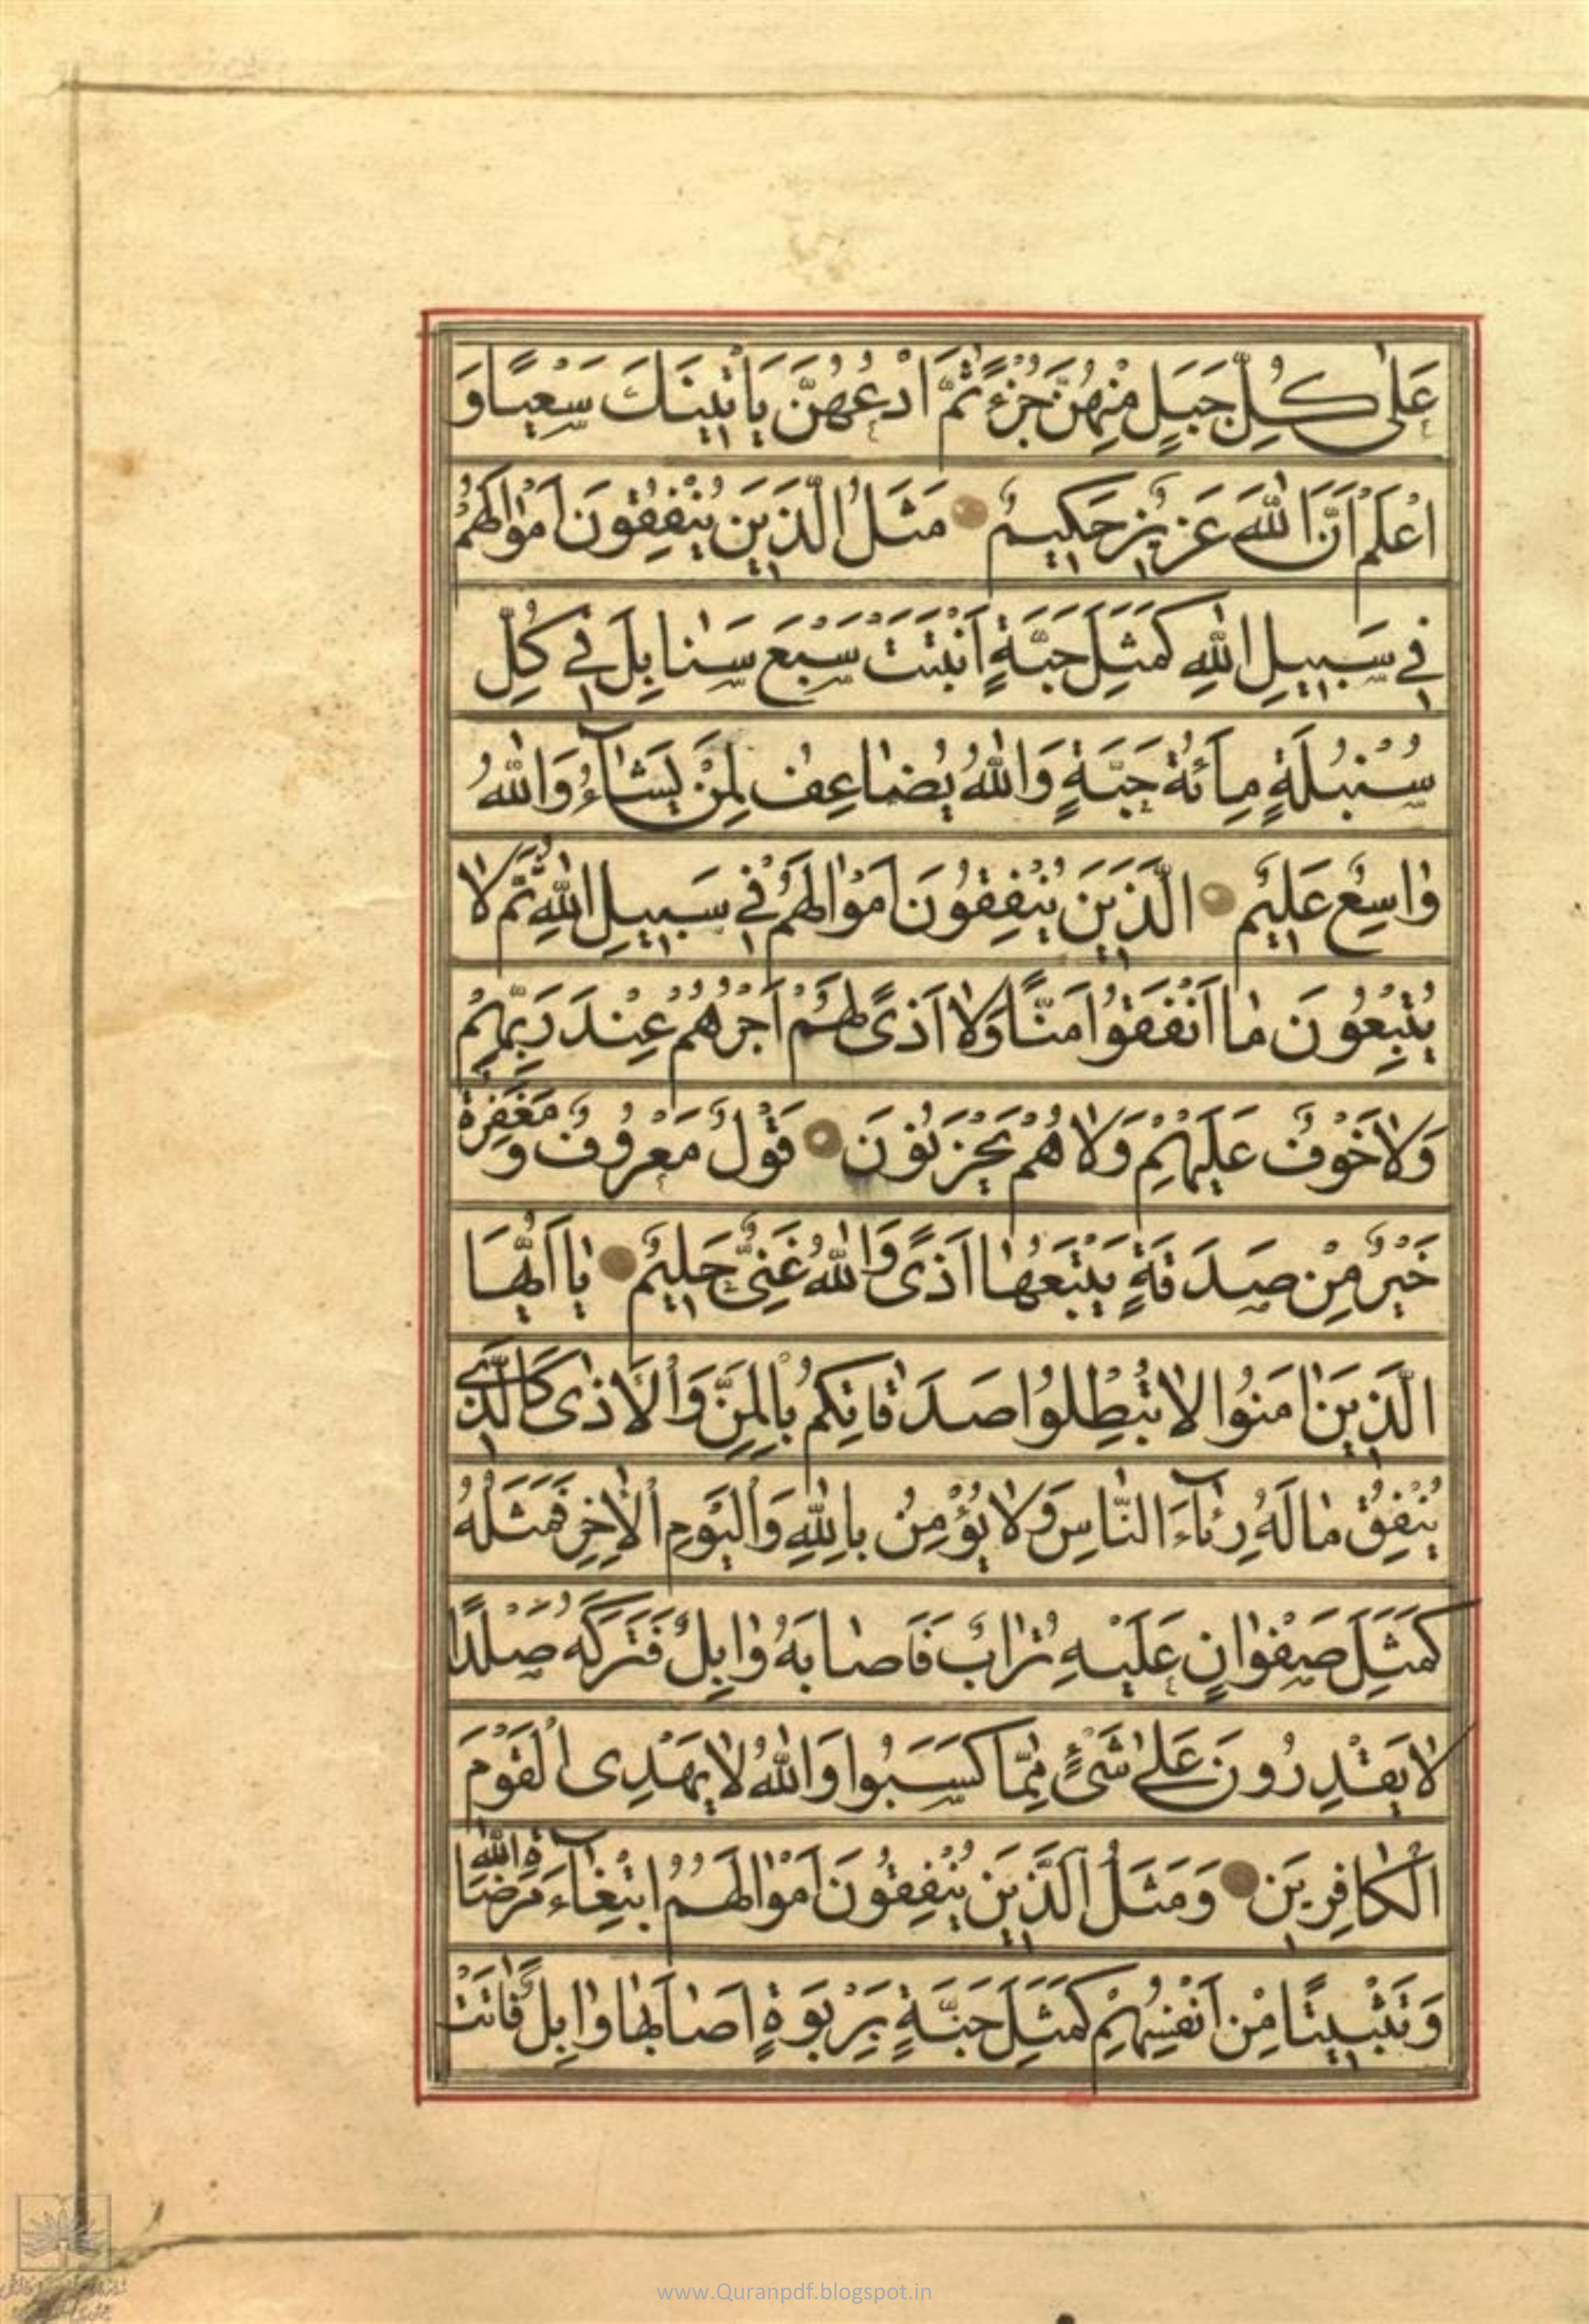 عَلٰى كُلِّ جَبَلٍ مِنْهُنَّ جُزْءًا ثُمَّ ادْعُهُنَّ يَأْتِينَكَ سَعْيًا وَ
اعْلَمْ اَنَّ اللّٰهَ عَزِيزٌ حَكِيمٌ مَثَلُ الَّذِينَ يُنْفِقُونَ اَمْوٰالَهُمْ
فِي سَبِيلِ اللّٰهِ كَمَثَلِ حَبَّةٍ اَنْبَتَتْ سَبْعَ سَنٰابِلَ فِي كُلِّ
سُنْبُلَةٍ مِائَةُ حَبَّةٍ وَاللّٰهُ يُضٰاعِفُ لِمَنْ يَشٰآءُ وَاللّٰهُ
وٰاسِعٌ عَلِيمٌ الَّذِينَ يُنْفِقُونَ اَمْوٰالَهُمْ فِي سَبِيلِ اللّٰهِ ثُمَّ لاٰ
يُتْبِعُونَ مٰا اَنْفَقُوا مَنًّا وَلاٰ اَذًى لَهُمْ اَجْرُهُمْ عِنْدَ رَبِّهِمْ
وَلاٰ خَوْفٌ عَلَيْهِمْ وَلاٰ هُمْ يَحْزَنُونَ قَوْلٌ مَعْرُوفٌ وَ مَغْفِرَةٌ
خَيْرٌ مِنْ صَدَقَةٍ يَتْبَعُهٰا اَذًى وَاللّٰهُ غَنِيٌّ حَلِيمٌ يٰا اَيُّهَا
الَّذِينَ اٰمَنُوا لاٰ تُبْطِلُوا صَدَقٰاتِكُمْ بِالْمَنِّ وَالْاَذٰى كَالَّذِي
يُنْفِقُ مٰالَهُ رِئٰآءَ النّٰاسِ وَلاٰ يُؤْمِنُ بِاللّٰهِ وَالْيَوْمِ الْاٰخِرِ فَمَثَلُهُ
كَمَثَلِ صَفْوٰانٍ عَلَيْهِ تُرٰابٌ فَاَصٰابَهُ وٰابِلٌ فَتَرَكَهُ صَلْدًا
لاٰ يَقْدِرُونَ عَلٰى شَيْءٍ مِمّٰا كَسَبُوا وَاللّٰهُ لاٰ يَهْدِى الْقَوْمَ
الْكٰافِرِينَ وَمَثَلُ الَّذِينَ يُنْفِقُونَ اَمْوٰالَهُمُ ابْتِغٰآءَ مَرْضٰاةِ اللّٰهِ
وَتَثْبِيتًا مِنْ اَنْفُسِهِمْ كَمَثَلِ جَنَّةٍ بِرَبْوَةٍ اَصٰابَهٰا وٰابِلٌ فَاٰتَتْ
www.Quranpdf.blogspot.in